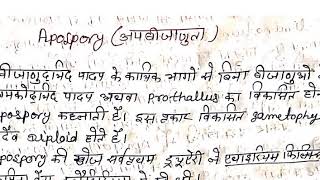 Apospory (अपबीजाणुता)
बीजाणुदभिद पादप के कायिक भागों से बिना बीजाणुओं
युग्मकोदभिद पादप अथवा Prothallus का विकसित होना
apospory कहलाती है। इस प्रकार विकसित gametophy
सदैव diploid होते हैं।
apospory की खोज सर्वप्रथम ड्रूऐरी ने एथाइरियम फिलिक्स